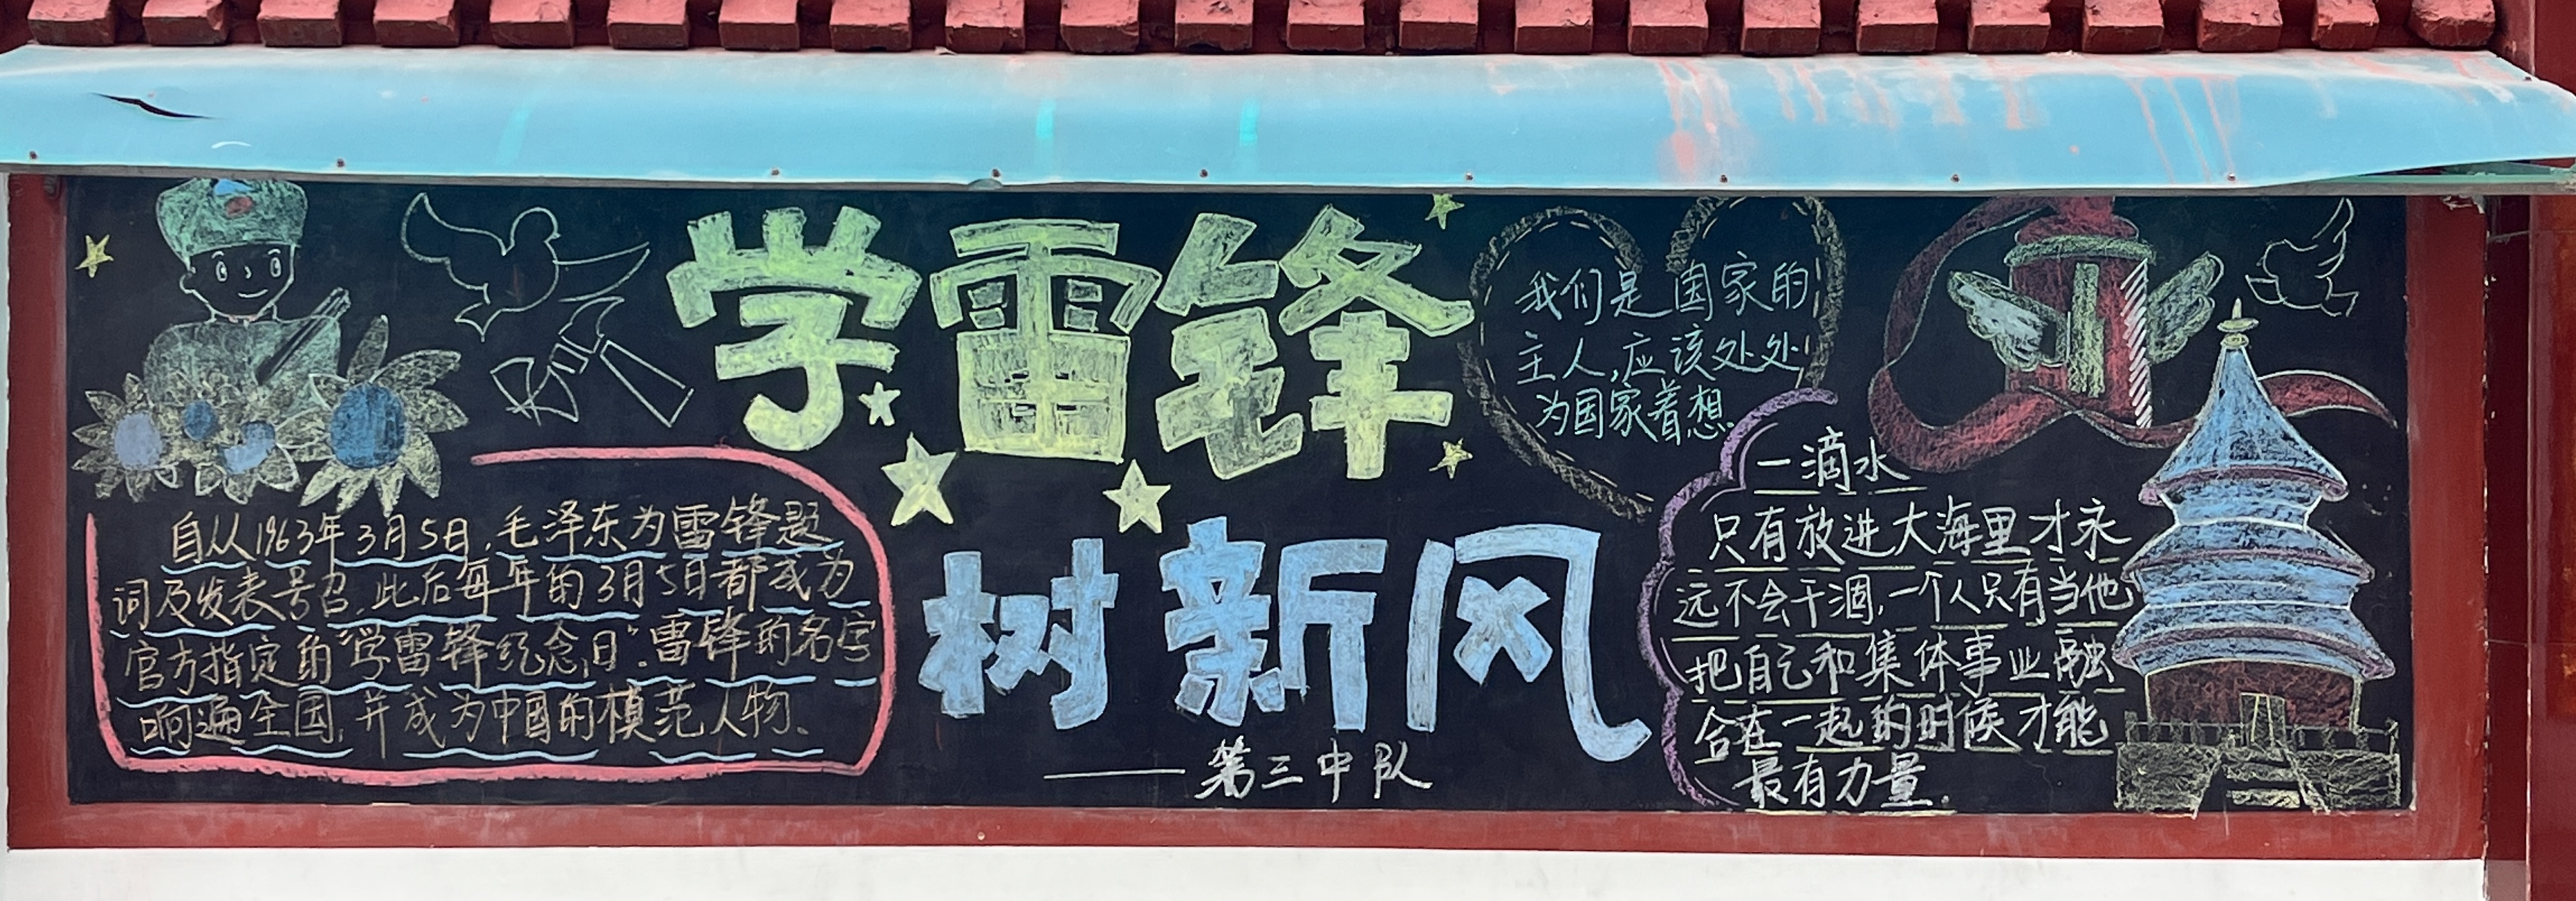 学雷锋
树新风
——第三中队
自从1963年3月5日,毛泽东为雷锋题
词及发表号召,此后每年的3月5日都成为
官方指定的"学雷锋纪念日".雷锋的名字
响遍全国,并成为中国的模范人物、
我们是国家的
主人,应该处处
为国家着想.
一滴水
只有放进大海里才永
远不会干涸,一个人只有当他
把自己和集体事业融
合在一起的时候才能
最有力量.